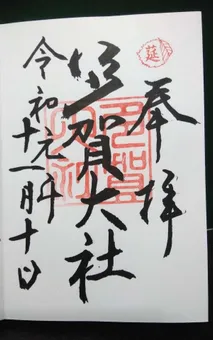 延
奉拝
多賀大社
令和元年十一月十日